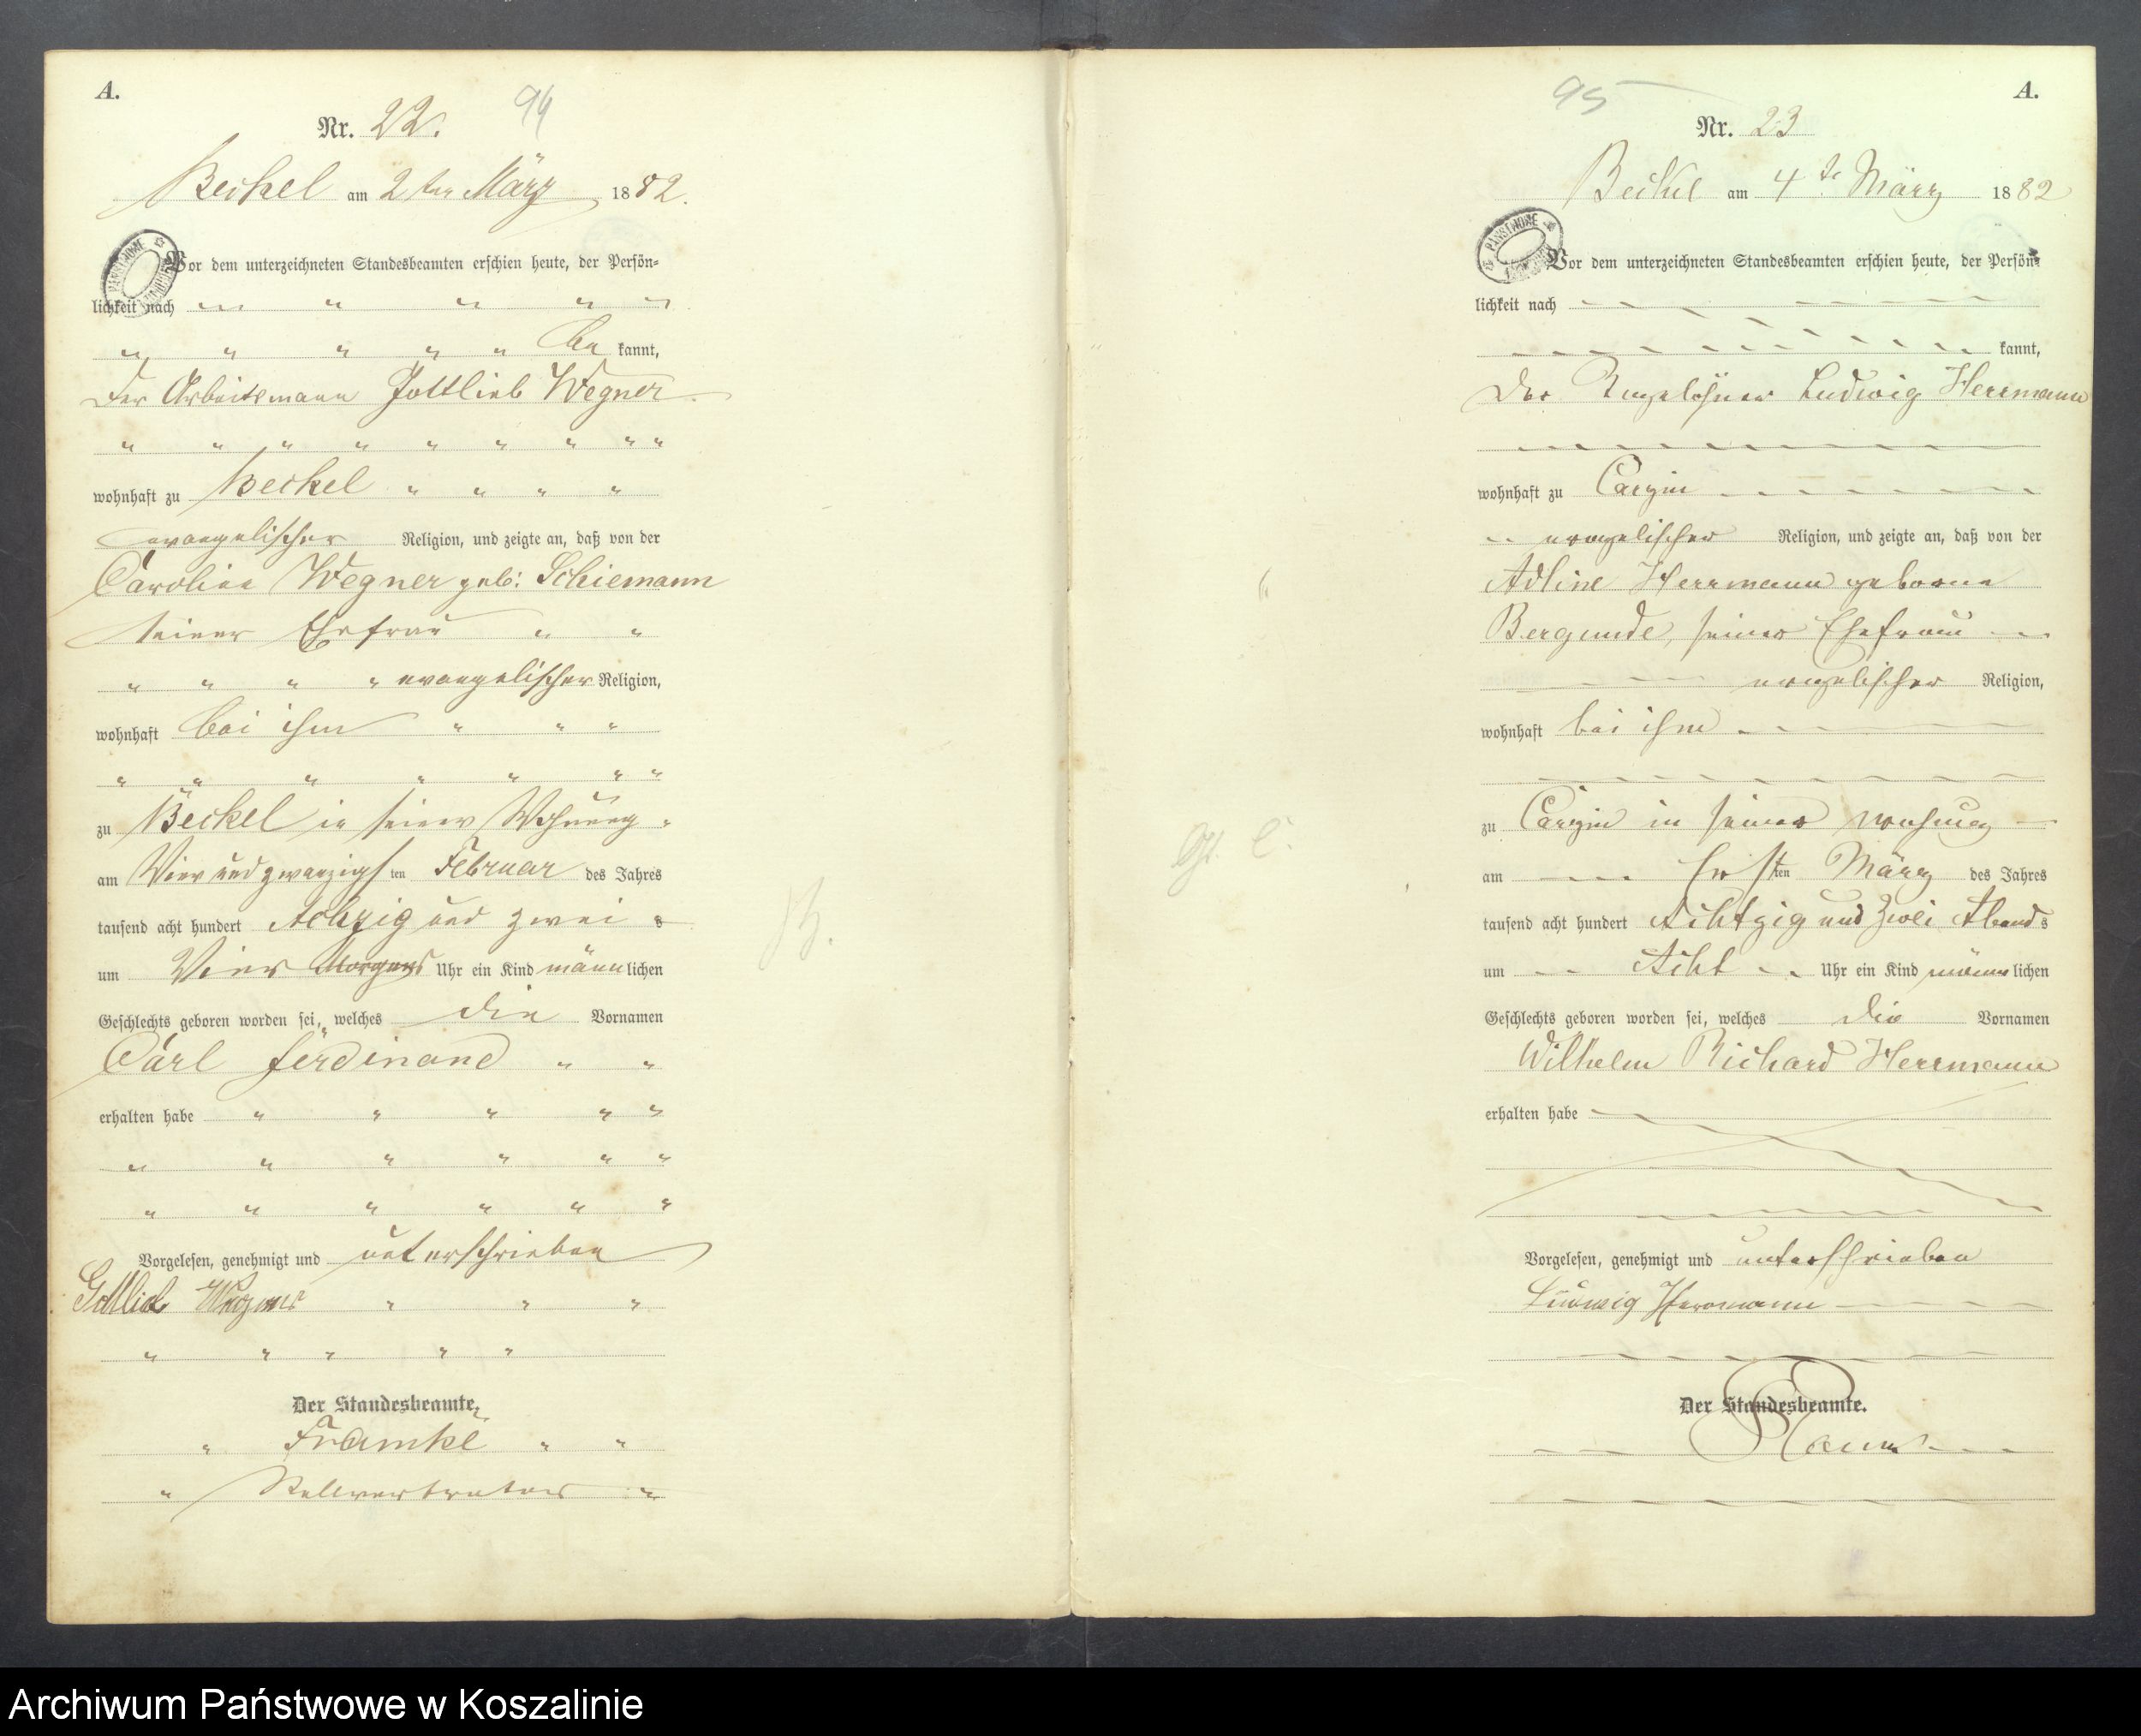 A.
Nr. 22. 94
Beckel am 2ten März 1882.
Vor dem unterzeichneten Standesbeamten erschien heute, der Persön-
lichkeit nach
be kannt,
der Arbeitsmann Gottlieb Wegner
wohnhaft zu Beckel
evangelischer Religion, und zeigte an, daß von der
Caroline Wegner geb: Schiemann
seiner Ehefrau
evangelischer Religion,
wohnhaft bei ihm
zu Beckel in seiner Wohnung
am Vier und zwanzigsten Februar des Jahres
tausend acht hundert Achzig und zwei
um Vier Morgens Uhr ein Kind männlichen
Geschlechts geboren worden sei, welches die Vornamen
Carl Ferdinand
erhalten habe
Vorgelesen, genehmigt und unterschrieben
Gottlieb Wegner
Der Standesbeamte.
Framke
Stellvertreter
95
A.
Nr. 23
Beckel am 4te März 1882
Vor dem unterzeichneten Standesbeamten erschien heute, der Persön-
lichkeit nach
kannt,
Der Ludwig Herrmann
wohnhaft zu
evangelischer Religion, und zeigte an, daß von der
Adline Herrmann geborne
Bergunde, seiner Ehefrau
evangelischer Religion,
wohnhaft bei ihm
zu in seiner Wohnung
am Ersten März des Jahres
tausend acht hundert Achtzig und Zwei Abends
um Acht Uhr ein Kind männlichen
Geschlechts geboren worden sei, welches die Vornamen
Wilhelm Richard Herrmann
erhalten habe
Vorgelesen, genehmigt und unterschrieben
Ludwig Herrmann
Der Standesbeamte.
Archiwum Państwowe w Koszalinie